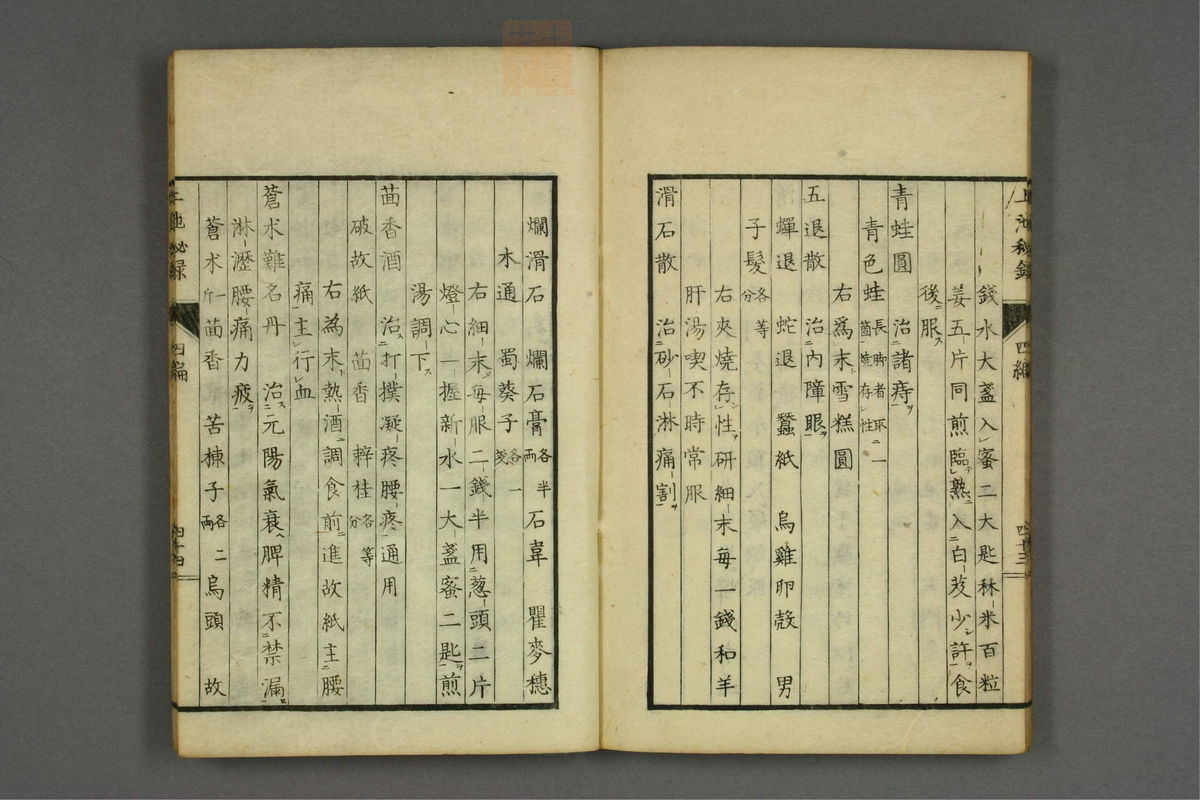 錢水大盞入蜜二大匙秫米百粒
姜五片同煎臨熟入白芨少許食
後服
青蛙圓　治諸痔
青色蛙長脚者取一箇燒存性
右爲末雪糕圓
五退散　治內障眼
蟬退　蛇退　蠶紙　烏雞卵殼　男
子髮各等分
右夾燒存性研細末每一錢和羊
肝湯喫不時常服
滑石散　治砂石淋痛割
上池秘錄　四編　四十三
爛滑石　爛石膏各半兩　石韋　瞿麥穗
木通　蜀葵子各一錢
右細末每服二錢半用葱頭二片
燈心一握新水一大盞蜜二匙煎
湯調下
茴香酒　治打撲凝疼腰疼通用
破故紙　茴香　辣桂各等分
右為末熱酒調食前進故紙主腰
痛主行血
蒼朮難名丹　治元陽氣衰脾精不禁漏
淋瀝腰痛力疲
蒼朮一斤　茴香　苦楝子各二兩　烏頭　故
上池秘録　四編　四十四